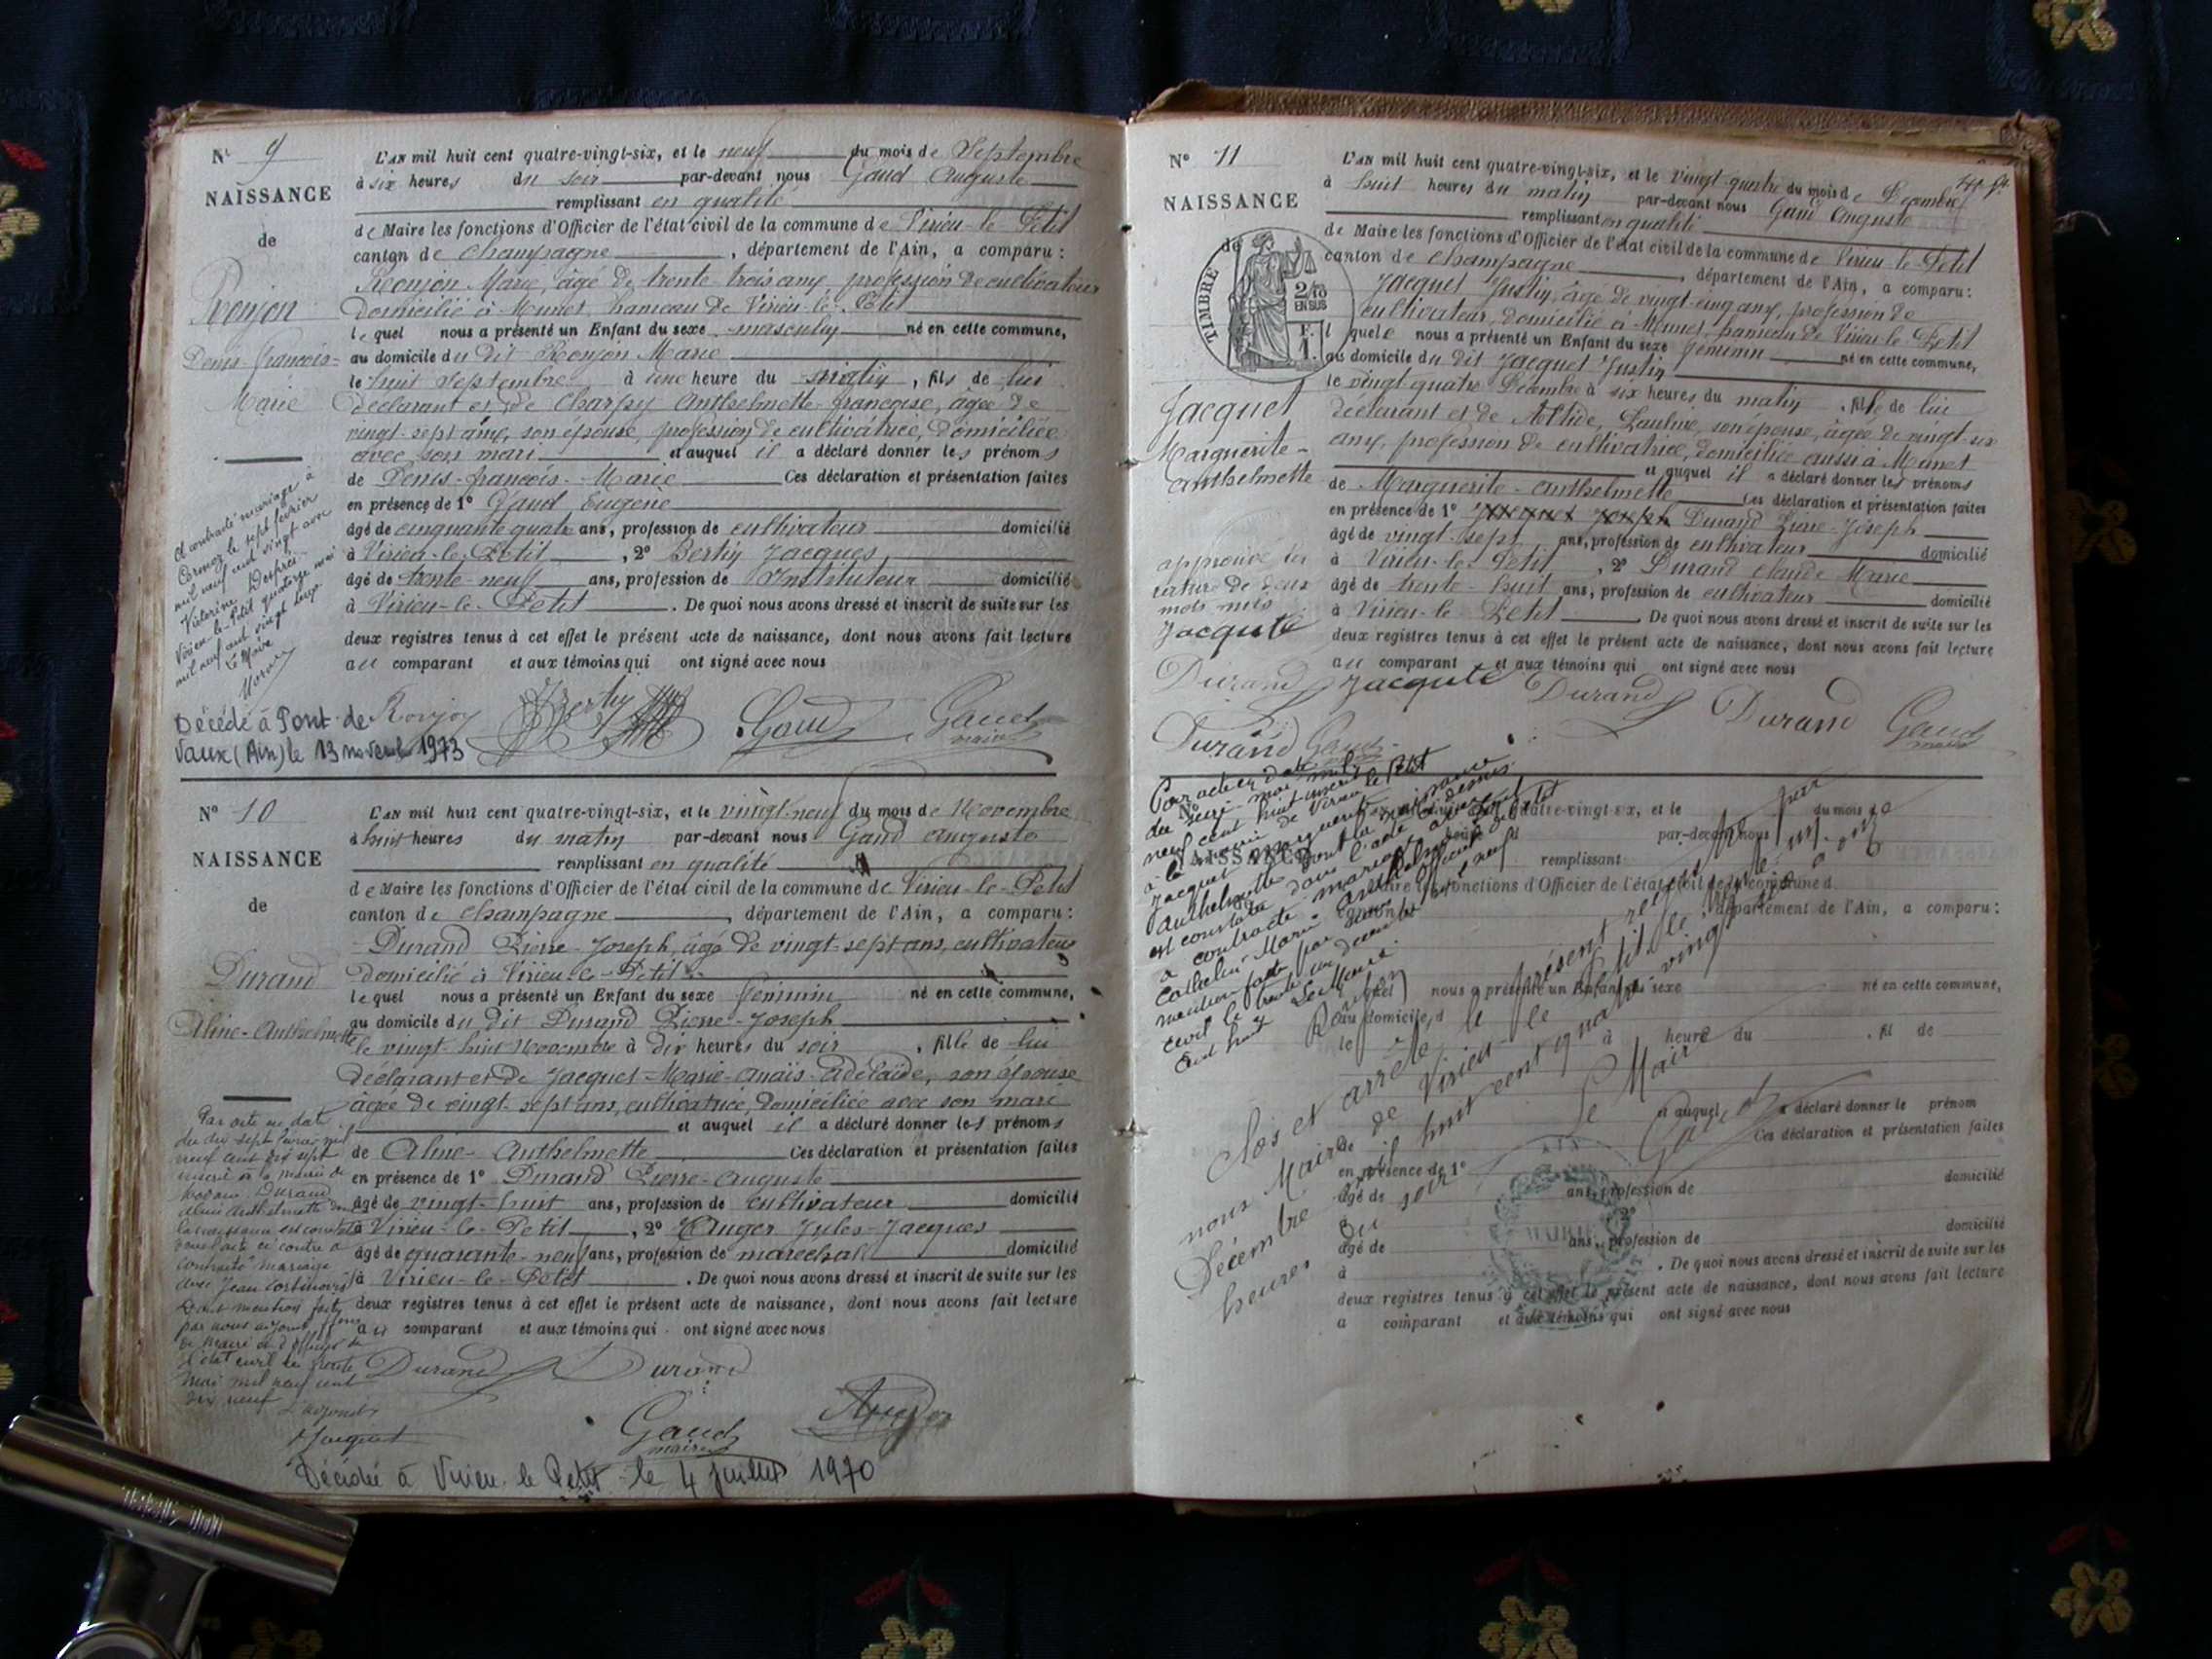 N° 9
NAISSANCE
de
Ronjon
Denis-françois-
Marie
L'AN mil huit cent quatre-vingt-six, et le neuf du mois de Septembre
à six heures du soir par-devant nous Gaud Auguste
remplissant en qualité
de Maire les fonctions d'Officier de l'état civil de la commune de Virieu-le-Petit
canton de Champagne, département de l'Ain, a comparu:
Ronjon Marie, âgé de trente-trois ans, profession de cultivateur
domicilié à Munet, hameau de Virieu-le-Petit
lequel nous a présenté un Enfant du sexe masculin né en cette commune,
au domicile du dit Ronjon Marie
le huit Septembre à une heure du matin, fils de lui
déclarant et de Charpy Anthelmette-françoise, âgée de
vingt-sept ans, son épouse, profession de cultivatrice, domiciliée
avec son mari et auquel il a déclaré donner les prénoms
de Denis-françois-Marie Ces déclaration et présentation faites
en présence de 1° Gaud Eugène
âgé de cinquante quatre ans, profession de cultivateur domicilié
à Virieu-le-Petit, 2° Bertin Jacques
âgé de trente-neuf ans, profession de Instituteur domicilié
à Virieu-le-Petit. De quoi nous avons dressé et inscrit de suite sur les
deux registres tenus à cet effet le présent acte de naissance, dont nous avons fait lecture
au comparant et aux témoins qui ont signé avec nous
A contracté mariage à
Cormoz le sept février
mil neuf cent vingt avec
Victorine
Virieu-le-Petit quatorze mai
mil neuf cent vingt
Le Maire
Ronjon Bertin Gaud Gaud
maire
Décédé à Pont-de
Vaux (Ain) le 13 novembre 1973
N° 10
NAISSANCE
de
Durand
Aline-Anthelmette
L'AN mil huit cent quatre-vingt-six, et le vingt-neuf du mois de Novembre
à huit heures du matin par-devant nous Gaud Auguste
remplissant en qualité
de Maire les fonctions d'Officier de l'état civil de la commune de Virieu-le-Petit
canton de Champagne, département de l'Ain, a comparu:
Durand Pierre-Joseph, âgé de vingt-sept ans, cultivateur
domicilié à Virieu-le-Petit
lequel nous a présenté un Enfant du sexe féminin né en cette commune,
au domicile du dit Durand Pierre-Joseph
le vingt-huit Novembre à dix heures du soir, fille de lui
déclarant et de Jacquet Marie-Anaïs-Adélaïde, son épouse
âgée de vingt-sept ans, cultivatrice, domiciliée avec son mari
et auquel il a déclaré donner les prénoms
de Aline-Anthelmette Ces déclaration et présentation faites
en présence de 1° Durand Pierre-Auguste
âgé de vingt-huit ans, profession de cultivateur domicilié
à Virieu-le-Petit, 2° Auger Jules-Jacques
âgé de quarante-neuf ans, profession de maréchal domicilié
à Virieu-le-Petit. De quoi nous avons dressé et inscrit de suite sur les
deux registres tenus à cet effet le présent acte de naissance, dont nous avons fait lecture
au comparant et aux témoins qui ont signé avec nous
Par acte en date
du dix sept mil
neuf cent dix sept
inscrit à la mairie de
Durand
Aline Anthelmette dont
la naissance est constatée
dans l'acte ci contre a
contracté mariage
avec Jean
Dont mention faite
par nous adjoint
de Maire et d'officier de
l'état civil le trente
mai mil neuf cent
dix neuf
L'adjoint
Jacquet
Durand Durand
Gaud Auger
maire
Décédée à Virieu-le-Petit le 4 juillet 1970
N° 11
NAISSANCE
de
TIMBRE
2/10
EN SUS
Jacquet
Marguerite-
Anthelmette
L'AN mil huit cent quatre-vingt-six, et le vingt-quatre du mois de Décembre
à huit heures du matin par-devant nous Gaud Auguste
remplissant en qualité
de Maire les fonctions d'Officier de l'état civil de la commune de Virieu-le-Petit
canton de Champagne, département de l'Ain, a comparu:
Jacquet Justin, âgé de vingt-cinq ans, profession de
cultivateur, domicilié à Munet, hameau de Virieu-le-Petit
lequel nous a présenté un Enfant du sexe féminin né en cette commune,
au domicile du dit Jacquet Justin
le vingt-quatre Décembre à six heures du matin, fille de lui
déclarant et de Pauline, son épouse, âgée de vingt-six
ans, profession de cultivatrice, domiciliée aussi à Munet
et auquel il a déclaré donner les prénoms
de Marguerite-Anthelmette Ces déclaration et présentation faites
en présence de 1° Jacquet Joseph Durand Pierre-Joseph
âgé de vingt-sept ans, profession de cultivateur domicilié
à Virieu-le-Petit, 2° Durand Claude Marie
âgé de trente-huit ans, profession de cultivateur domicilié
à Virieu-le-Petit. De quoi nous avons dressé et inscrit de suite sur les
deux registres tenus à cet effet le présent acte de naissance, dont nous avons fait lecture
au comparant et aux témoins qui ont signé avec nous
approuvé la
rature de deux
mots nuls
Jacquet
Durand Jacquet Durand Durand Gaud
maire
Durand Gaud
Par acte en date
du seize mai mil
neuf cent huit inscrit
à la mairie de Virieu le Petit
Jacquet Marguerite
Anthelmette dont la naissance
est constatée dans l'acte ci-dessus
a contracté mariage avec
Marie Anthelme
mention faite par nous officier de l'état
civil le trente un décembre mil neuf
cent huit
Le Maire
N°
NAISSANCE
L'AN mil huit cent quatre-vingt-six, et le du mois de
par-devant nous
remplissant
de Maire les fonctions d'Officier de l'état civil de la commune d
canton d département de l'Ain, a comparu:
lequel nous a présenté un Enfant du sexe né en cette commune,
au domicile d
le à heure du , fil de
et auquel a déclaré donner le prénom
de Ces déclaration et présentation faites
en présence de 1°
âgé de ans, profession de domicilié
2°
âgé de ans, profession de domicilié
à . De quoi nous avons dressé et inscrit de suite sur les
deux registres tenus à cet effet le présent acte de naissance, dont nous avons fait lecture
a comparant et aux témoins qui ont signé avec nous
Clos et arrêté le présent registre par
nous Maire de Virieu-le-Petit le trente-un
Décembre mil huit cent quatre-vingt-six à onze
heures du soir
Le Maire
Gaud
MAIRIE
AIN